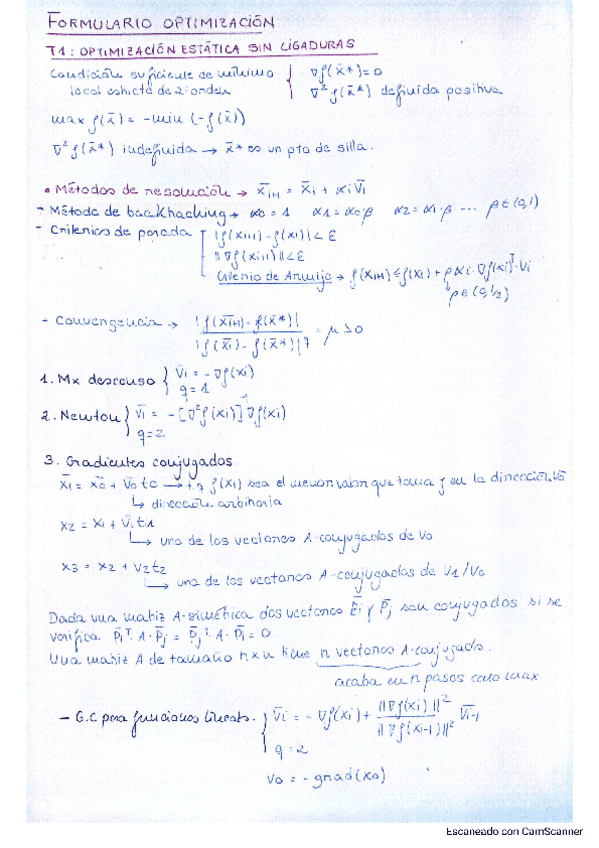 FORMULARIO OPTIMIZACIÓN
T1: OPTIMIZACIÓN ESTÁTICA SIN LIGADURAS
Condición suficiente de mínimo { ∇f(x̄*)=0
local estricto de 2º orden ∇²f(x̄*) definida positiva.
max f(x̄) = -min (-f(x̄))
∇²f(x̄*) indefinida → x̄* es un pto de silla.
• Métodos de resolución → x̄i+1 = x̄i + αi v̄i
- Método de backtracking → α0 = 1 α1 = α0·ρ α2 = α1·ρ ... ρ∈(0,1)
- Criterios de parada |f(xi+1) - f(xi)| < ε
||∇f(xi+1)|| < ε
Criterio de Armijo → f(xi+1) ≤ f(xi) + ρ αi · ∇f(xi)ᵀ · vi
ρ∈(0,1/2)
- Convergencia → |f(x̄i+1) - f(x̄*)| / |f(x̄i) - f(x̄*)|q = μ > 0
1. Mx descenso { v̄i = -∇f(xi)
q = 1
2. Newton { v̄i = -[∇²f(xi)] ∇f(xi)
q = 2
3. Gradientes conjugados
x̄1 = x̄0 + v̄0 t0 → t.q f(x1) sea el menor valor que toma f en la dirección v̄0
↳ dirección arbitraria
x2 = x1 + v̄1 t1
↳ uno de los vectores A-conjugados de v0
x3 = x2 + v2 t2
↳ uno de los vectores A-conjugados de v1/v0
Dada una matriz A-simétrica dos vectores P̄i y P̄j son conjugados si se
verifica. P̄iᵀ · A · P̄j = P̄jᵀ · A · P̄i = 0
Una matriz A de tamaño n×n tiene n vectores A-conjugado.
acaba en n pasos como max
- G.C para funciones lineals. { v̄i = -∇f(xi) + ||∇f(xi)||² / ||∇f(xi-1)||² v̄i-1
q = 2
v0 = -grad(x0)
Escaneado con CamScanner